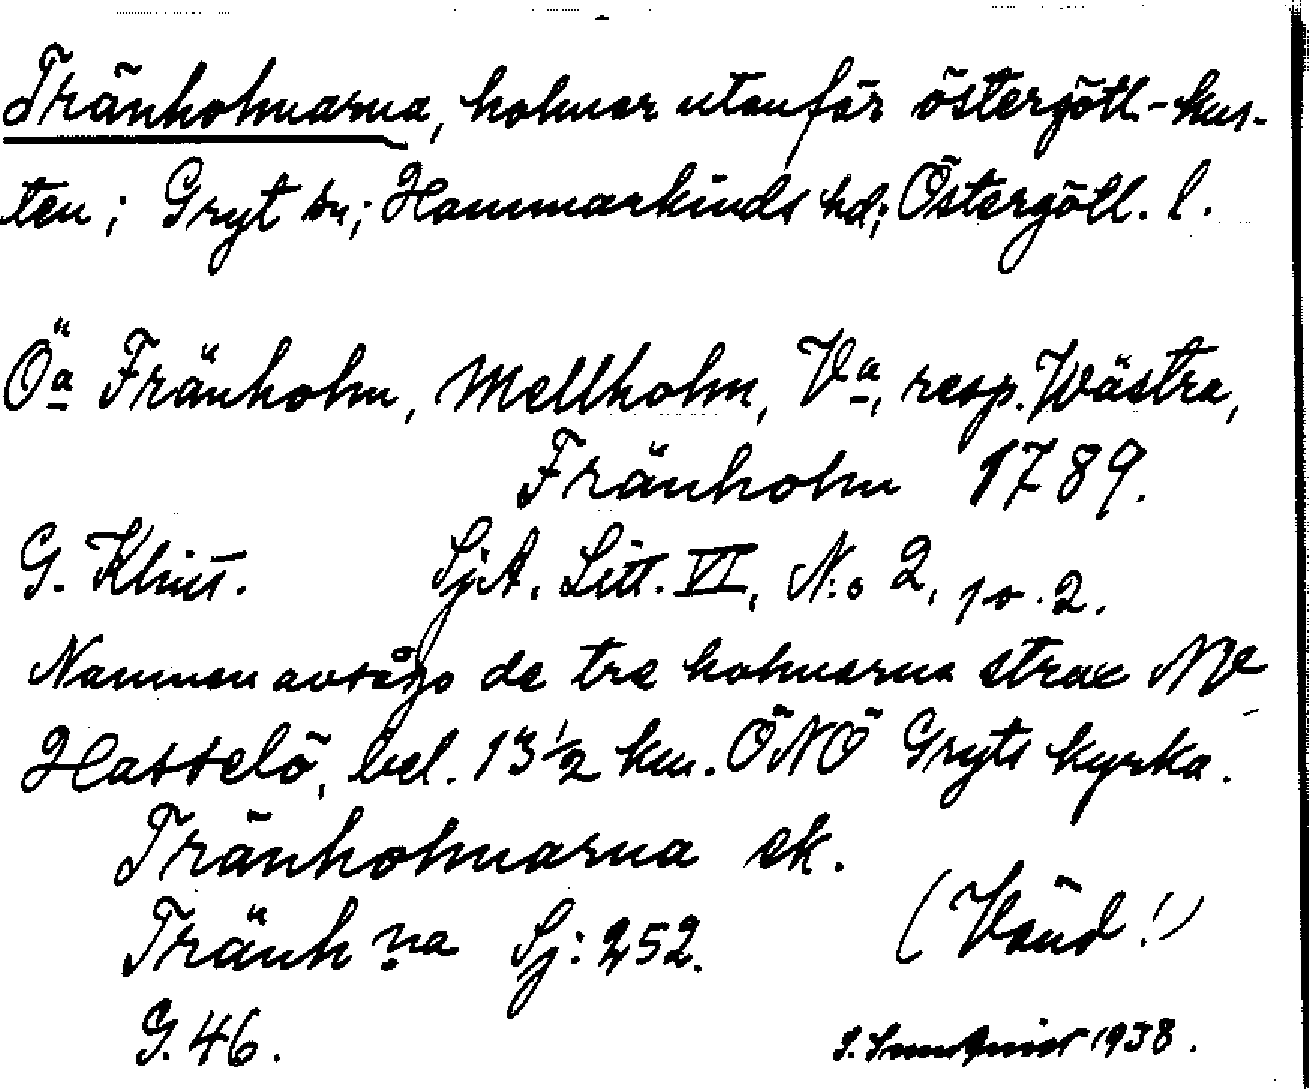 Tränholmarna, holmar utanför östergötl.-kus-
ten; Gryt sn; Hammarkinds hd; Östergötl. l.
Öa Fränholm, Mellholm, Va, resp. Wästra,
Fränholm 1789.
G. Klint. SjA. Litt. VI, N:o 2, p. 2.
Namnen avságo de tre holmarna strax NV
Hasselö, bel. 13½ km. ÖNÖ Gryts kyrka.
Tränholmarna ek.
Tränh na Sj: 252. (Vänd!)
G. 46. 1938.